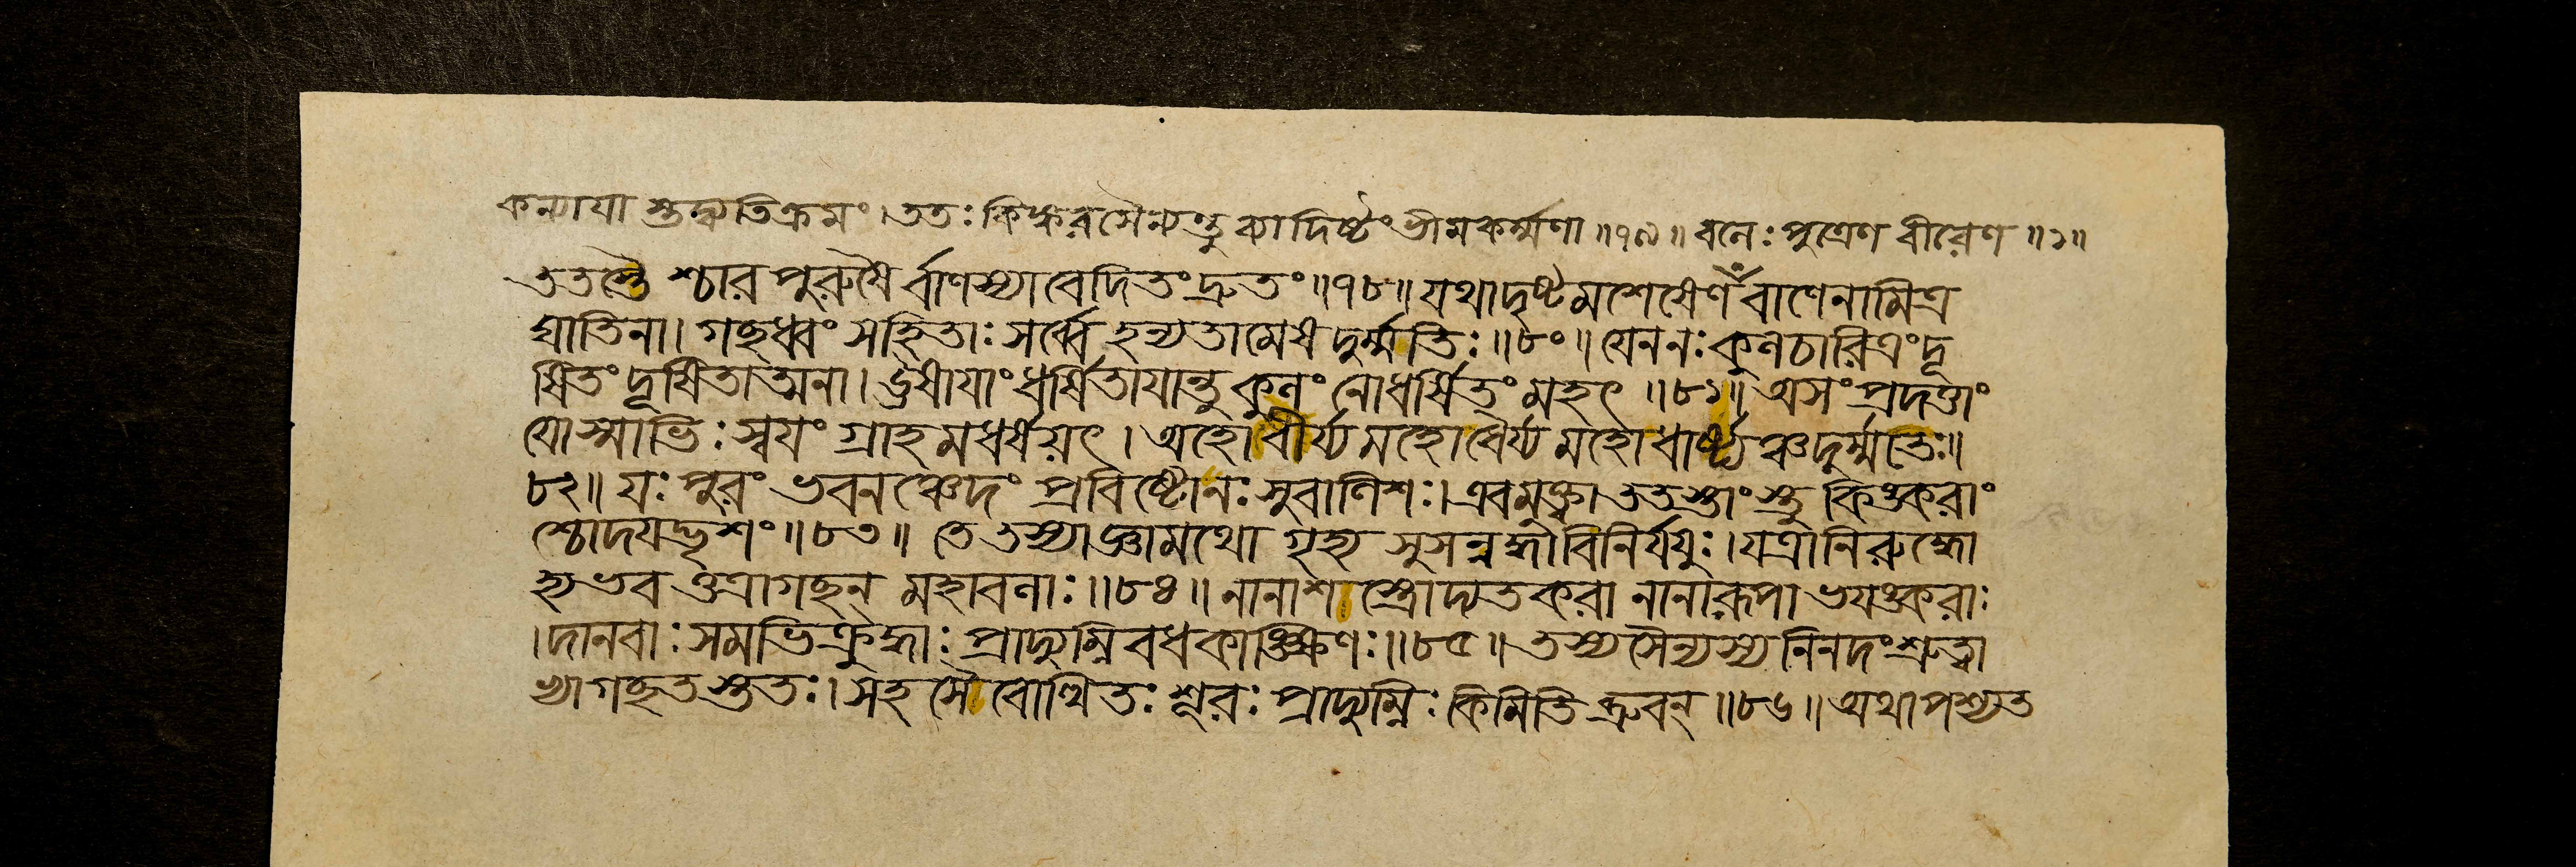 কন্যাযা স্তদ্ব্যতিক্রমং। ততঃ কিঙ্করসৈন্যন্তু ব্যাদিষ্টং ভীমকর্ম্মণা ॥৭৯॥ বলেঃ পুত্রেণ বীরেণ ॥১॥
ততস্তৈ শ্চার পুরুষৈ র্বাণস্যাবেদিতং দ্রুতং॥৭৮॥ যথাদৃষ্টমশেষেণ বাণেনামিত্র
ঘাতিনা। গছধ্বং সহিতাঃ সর্ব্বে হন্যতামেষ দুর্ম্মতিঃ॥৮০॥ যেননঃ কুলচারিত্রং দূ
ষিতং দূষিতাত্মনা। ঊষাযাং ধর্ষিতাযান্তু কুলং নোধর্ষিতং মহৎ ॥৮১॥ অসংপ্রদত্তাং
যোস্মাভিঃ স্বযং গ্রাহমধর্ষয়ৎ। অহোবীর্য্য মহোধৈর্য্য মহোধার্ষ্ট্য ঞ্চদুর্ম্মতেঃ॥
৮২॥ যঃ পুরং ভবনঞ্চেদং প্রবিষ্টোনঃ সুবালিশঃ। এবমুক্ত্বা ততস্তাংস্তু কিঙ্করাং
শ্চোদযদ্ভৃশং॥৮৩॥ তে তস্যাজ্ঞামথো গৃহ্য সুসন্নদ্ধাবিনির্যযুঃ। যত্রানিরুদ্ধো
হ্যভব ত্তত্রাগছন্ মহাবলাঃ॥৮৪॥ নানাশস্ত্রোদ্যতকরা নানারূপা ভযঙ্করাঃ
।দানবাঃ সমভিক্রুদ্ধাঃ প্রাদ্যুম্নিবধকাঙ্ক্ষিণঃ॥৮৫॥ তস্যসৈন্যস্যনিনদং শ্রুত্বা
থাগছতস্ততঃ। সহসৈবোত্থিতঃ শূরঃ প্রাদ্যুম্নিঃ কিমিতিব্রুবন্ ॥৮৬॥ অথাপশ্যত